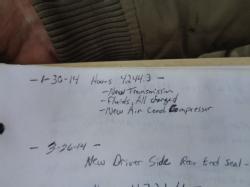 - 1-30-14 Hours 4244.3 -
- New Transmission
- Fluids, All changed
- New Air Cond Compressor
- 3-26-14 -
New Driver Side Rear End seal -